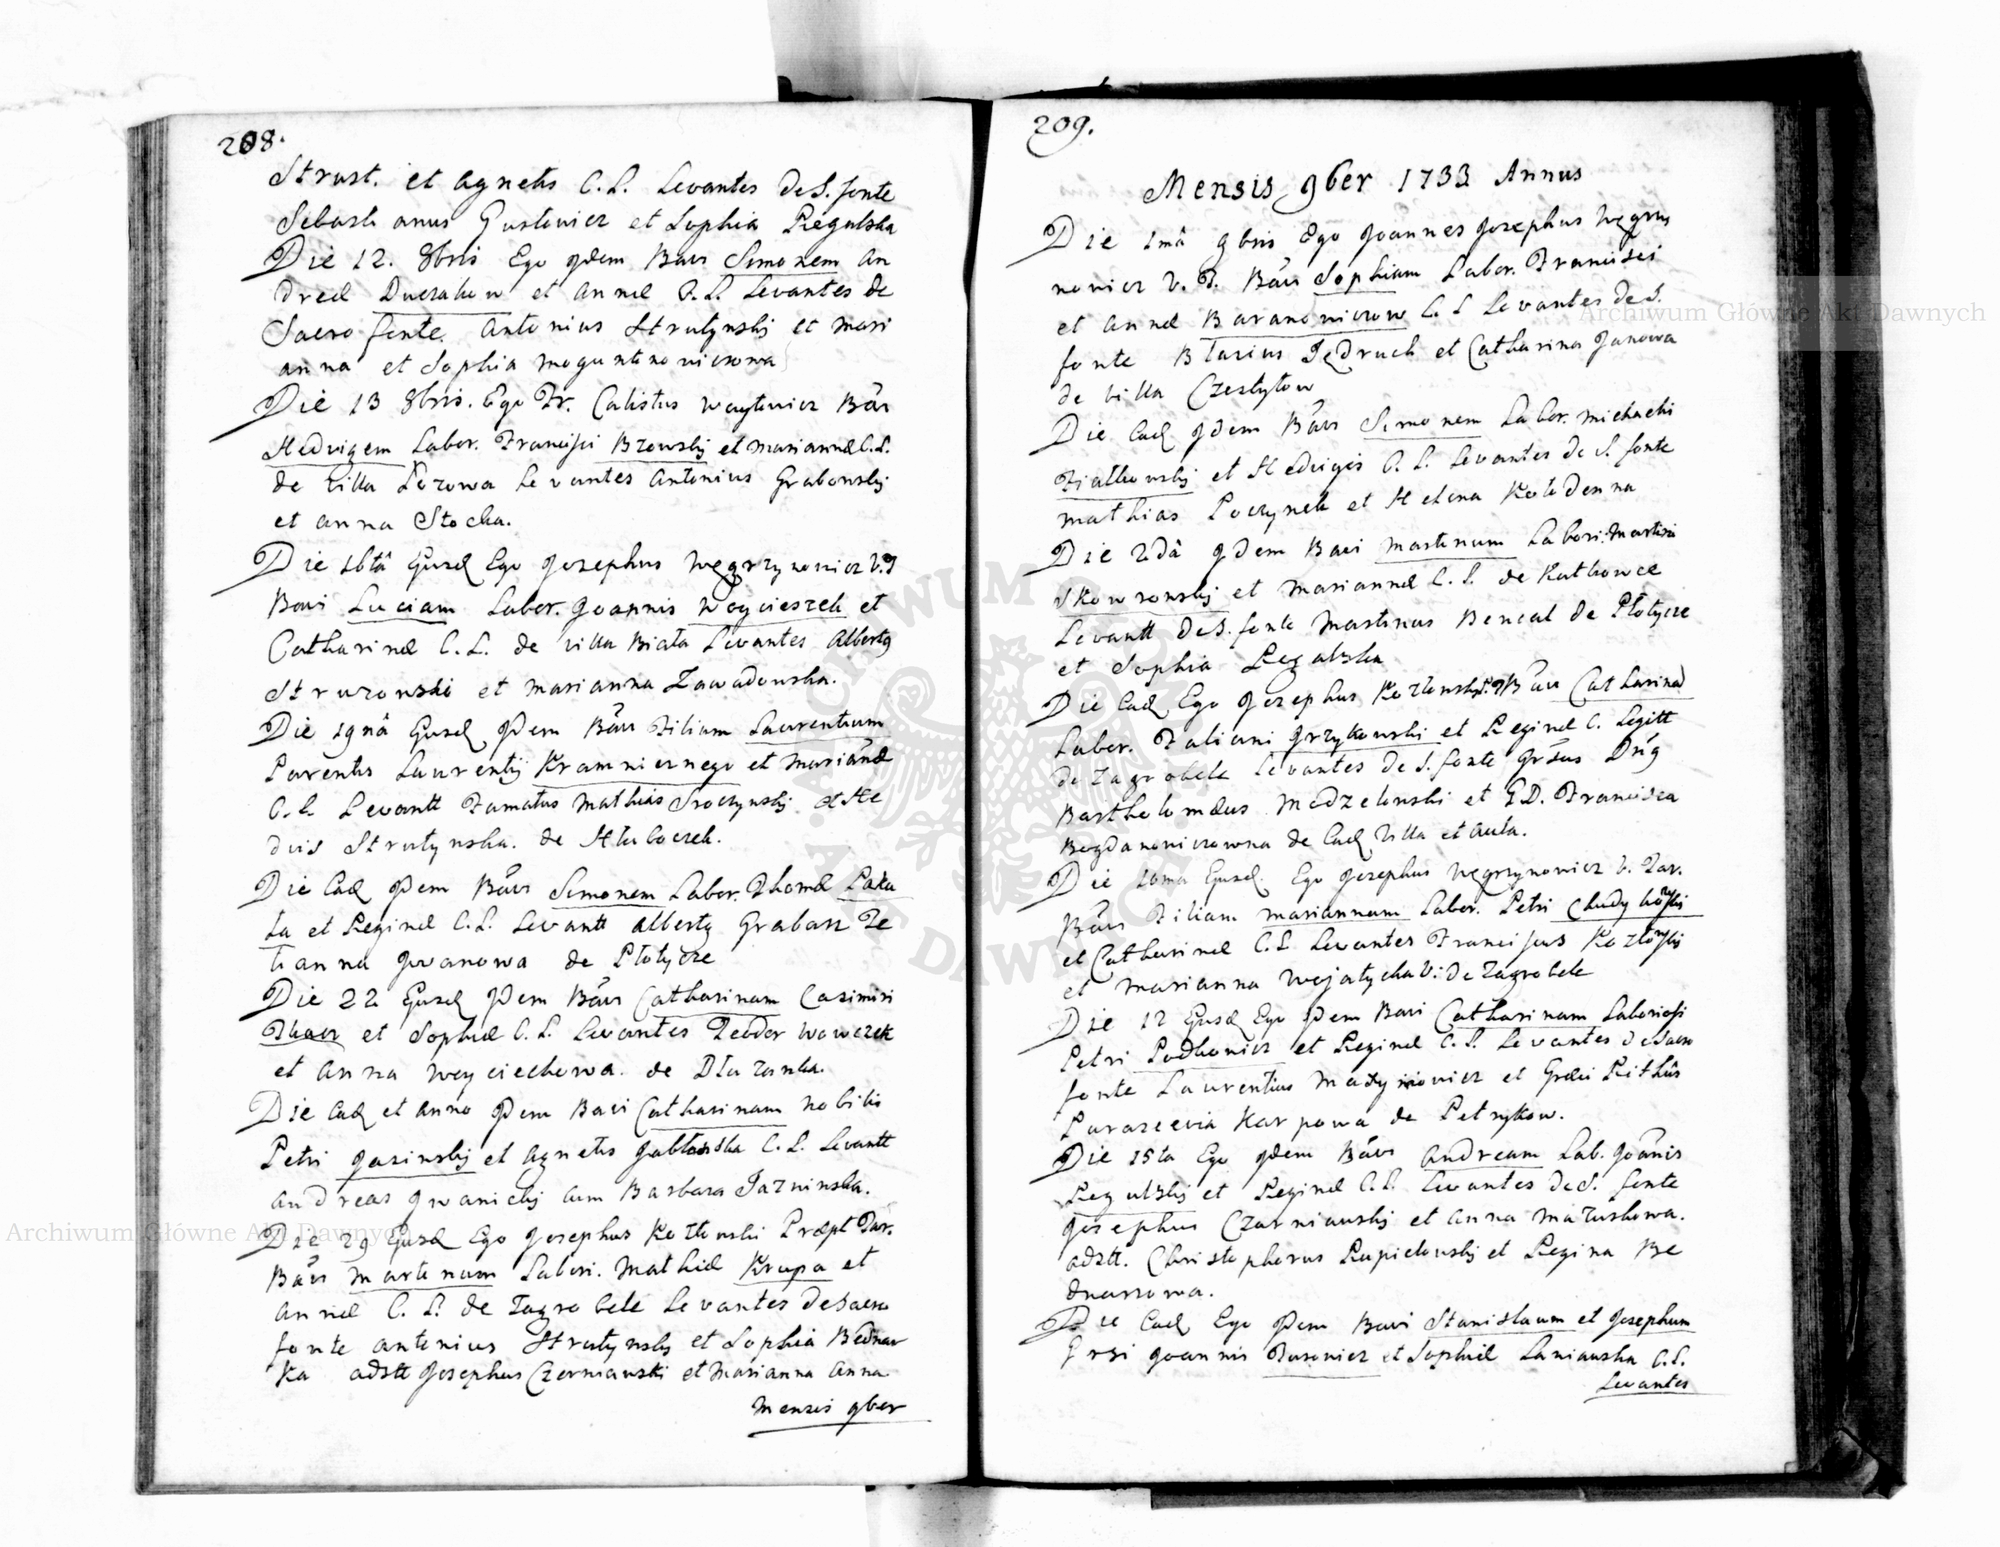 208.
Strust. et Agnetis C. L. Levantes de S. fonte
Sebasti anus Gustowicz et Sophia Regulska
Die 12. 8bris Ego qdem Baui Simonem An
dreæ Duczakow et Annæ C. L. Levantes de
Sacro fonte. Antonius Strutynskj et Mari
anna et Sophia moguntnowiczowa
Die 13 8bris. Ego Fr. Calistus Woytowicz Bāui
Hedvigem Labor. Francisci Bzowskj et Mariannæ C. L.
de villa Lozowa Levantes Antonius Grabowskj
et Anna Stocka.
Die 16tâ Eusd Ego Josephus Węgrzynowicz V. P
Baui Luciam Labor. Joannis Woycieszek et
Catharinæ C. L. de villa Biała Levantes Alberty
Struzowski et Marianna Zawadowska.
Die 19nâ Eusd qdem Bāui Filium Laurentium
Parentis Laurentij Kramnicznego et Mariānæ
C. L. Levantt Famatus Mathias Sroczynskj et He
dvis Strutynska. de Hluboczek.
Die Ead qdem Bāui Simonem Labor. Thomæ Laka
ta et Reginæ C. L. Levantt Alberty Grabasz Te
tianna Jwanowa de Płotycze
Die 22 Eusd qdem Bāui Catharinam Casimiri
Tkacz et Sophiæ C. L. Levantes Teodor Wowczek
et Anna Woyciechowa. de Dłuzanka.
Die Ead et Anno qdem Baui Catharinam nobilis
Petri Jasinskj et Agnetis Jabłonska C. L. Levantt
Andreas Jwanickj cum Barbara Jazwinska.
Die 29 Eusd Ego Josephus Kozłowski Præpt Tar.
Bāui Martinum Labori. Mathiæ Krupa et
Annæ C. L. de Zagrobele Levantes de Sacro
fonte Antonius Strutynskj et Sophia Bednar
ka adstt Josephus Czerniawski et Marianna Anna
Mensis 9ber
209.
Mensis 9ber 1733 Annus
Die 1mâ 9bris Ego Joannes Josephus Węgrzy
nowicz V. P. Bāui Sophiam Labor. Francisci
et Annæ Baranowiczow C. L Levantes de S.
fonte Blasius Jędruch et Catharina Janowa
de villa Czestyłow
Die Ead qdem Bāui Simonem Labor. Michaelis
Fiałkowskj et Hedvigis C. L. Levantes de S. fonte
Mathias Poczynek et Helena Kołodenna
Die 2dâ qdem Baui Martinum Labori. Martini
Skowronskj et Mariannæ C. L. de Kutkowce
Levantt de S. fonte Martinus Bencal de Płotycze
et Sophia Regulska
Die Ead Ego Josephus Kozłowskj Bāui Catharinā
Labor. Fabiani Grzykowski et Reginæ C. Legitt
de Zagrobele Levantes de S. fonte
Bartholomæus Modzelewski et G D. Francisca
Bogdanowiczowna de Ead Villa et Aula.
Die 10ma Eusd. Ego Josephus Węgrzynowicz V. Tar.
Bāui Filiam Mariannam Labor. Petri
et Catharinæ C. L Levantes Franciscus Kozłowskj
et Marianna Wojatycka V: de Zagrobele
Die 12 Eusd Ego qdem Baui Catharinam Laboriosi
Petri Podkowicz et Reginæ C. L. Levantes de Sacro
fonte Laurentius Maxymowicz et Græci Rithûs
Parascevia Karpowa de Petrykow.
Die 15ta Ego qdem Bāui Andream Lab. Joānis
Regulskj et Reginæ C. L. Levantes de S. fonte
Josephus Czarniawskj et Anna Mazurkowa.
adstt. Christophorus Rupielowskj et Regina Be
dnarzowa.
Die Ead Ego qdem Baui Stanislaum et Josephum
Joannis Dusowicz et Sophiæ Laniauska C. L.
Levantes
Archiwum Główne Akt Dawnych
Archiwum Główne Akt Dawnych
ARCHIWUM GŁÓWNE AKT DAWNYCH